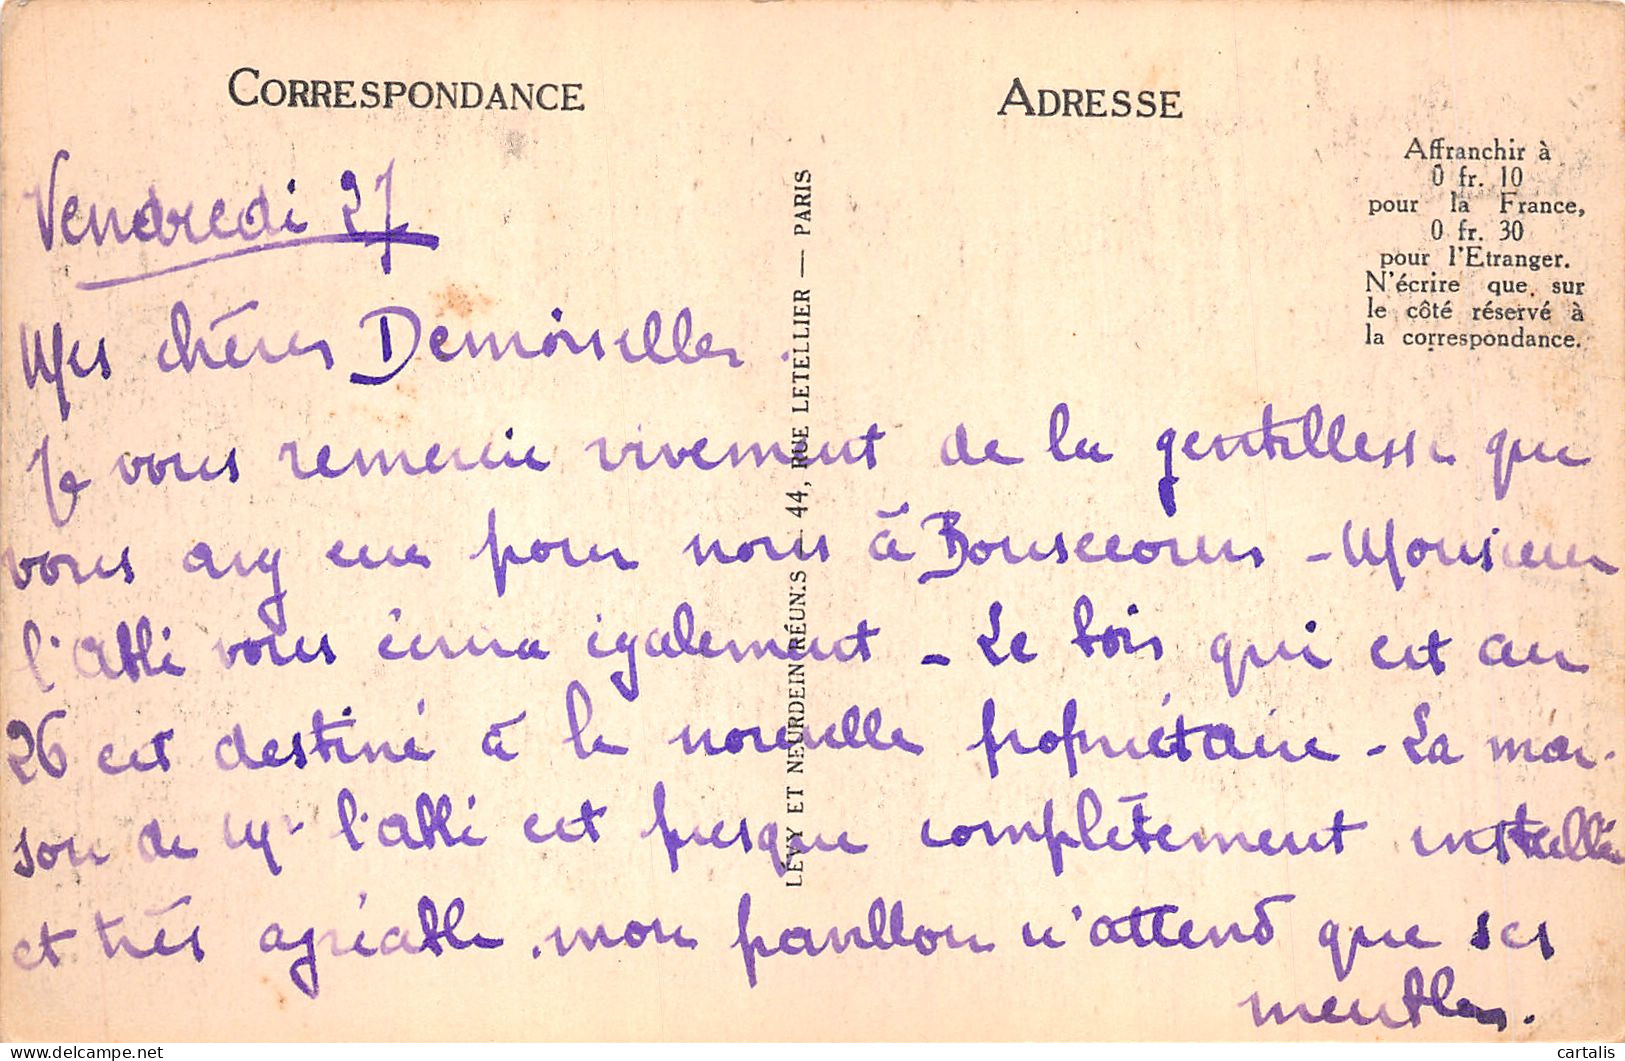 CORRESPONDANCE
ADRESSE
Affranchir à
0 fr. 10
pour la France,
0 fr. 30
pour l'Etranger.
N'écrire que sur
le côté réservé à
la correspondance.
LEVY ET NEURDEIN RÉUNIS — 44, RUE LETELLIER — PARIS
Vendredi 27
Mes chères Demoiselles.
Je vous remercie vivement de la gentillesse que
vous avez eue pour nous à Bonsecours - Monsieur
l'abbé vous écrira également - Le bois qui est au
26 est destiné à la nouvelle propriétaire - La mai-
son de Mr l'abbé est presque complètement installée
et très agréable. mon pavillon n'attend que ses
meubles.
cartalis